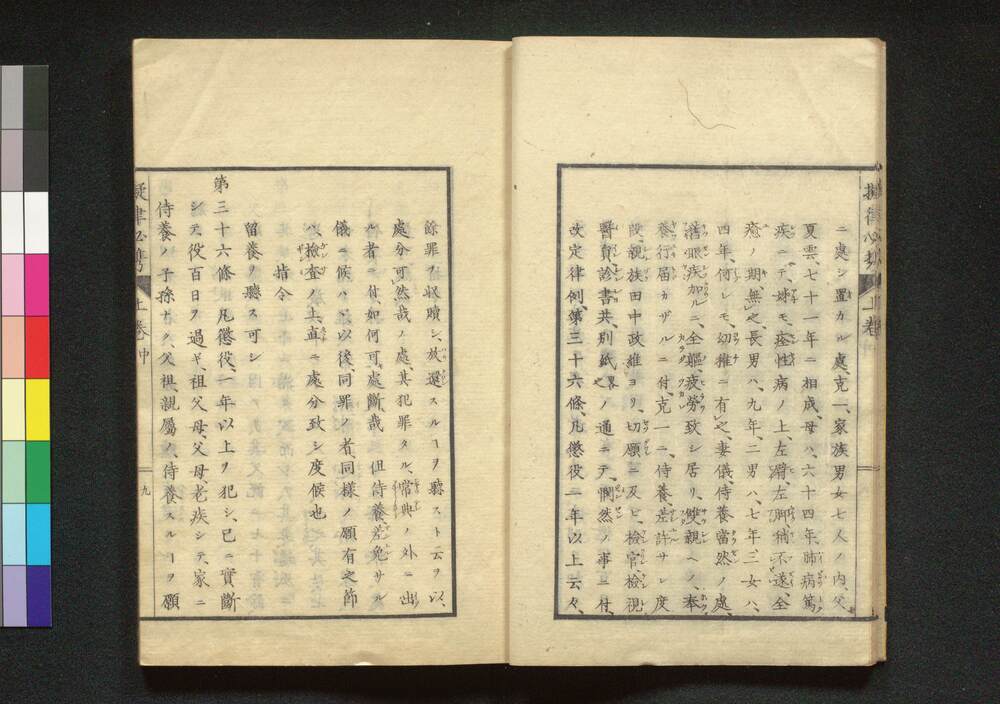 ニ處シ置カル處、克一、家族男女七人ノ内、父
夏雲、七十一年ニ相成、母ハ、六十四年、肺病篤
疾ニテ、殊ニ痓性病ノ上、左臂、左脚、稍不遂、全
癒ノ期、無之、長男ハ、九年、二男ハ、七年、三女ハ、
四年、何レモ、幼稚ニ有之、妻儀、侍養當然ノ處、
舊眼疾加ルニ、全軀疲勞致シ居リ、雙親ヘノ奉
養行届カザルニ付、克一ニ、侍養差許サレ度
段、親族田中政維ヨリ、切願ニ及ビ、檢官檢視、
醫員診書共、別紙畧之ノ通ニテ、憫然ノ事ニ付、
改定律例、第三十六條、凡懲役一年以上云々、
擬律必携 上巻中
餘罪ヲ收贖シ、放還スルヿヲ聽スト云ヲ以、
處分可然哉ノ處、其犯罪タル、常典ノ外ニ出
ル者ニ付、如何可處斷哉、但侍養差免サル
儀ニ候ハヾ、以後、同罪ノ者、同樣ノ願有之節
ハ、檢査ノ上、直ニ處分致シ度候也
指令
留養ヲ聽ス可シ
第三十六條 凡懲役、一年以上ヲ犯シ、已ニ實斷
シテ、役百日ヲ過ギ、祖父母、父母、老疾シテ、家ニ
侍養ノ子孫ナク、父祖、親屬ノ、侍養スルヿヲ願
擬律必携 上巻中 九